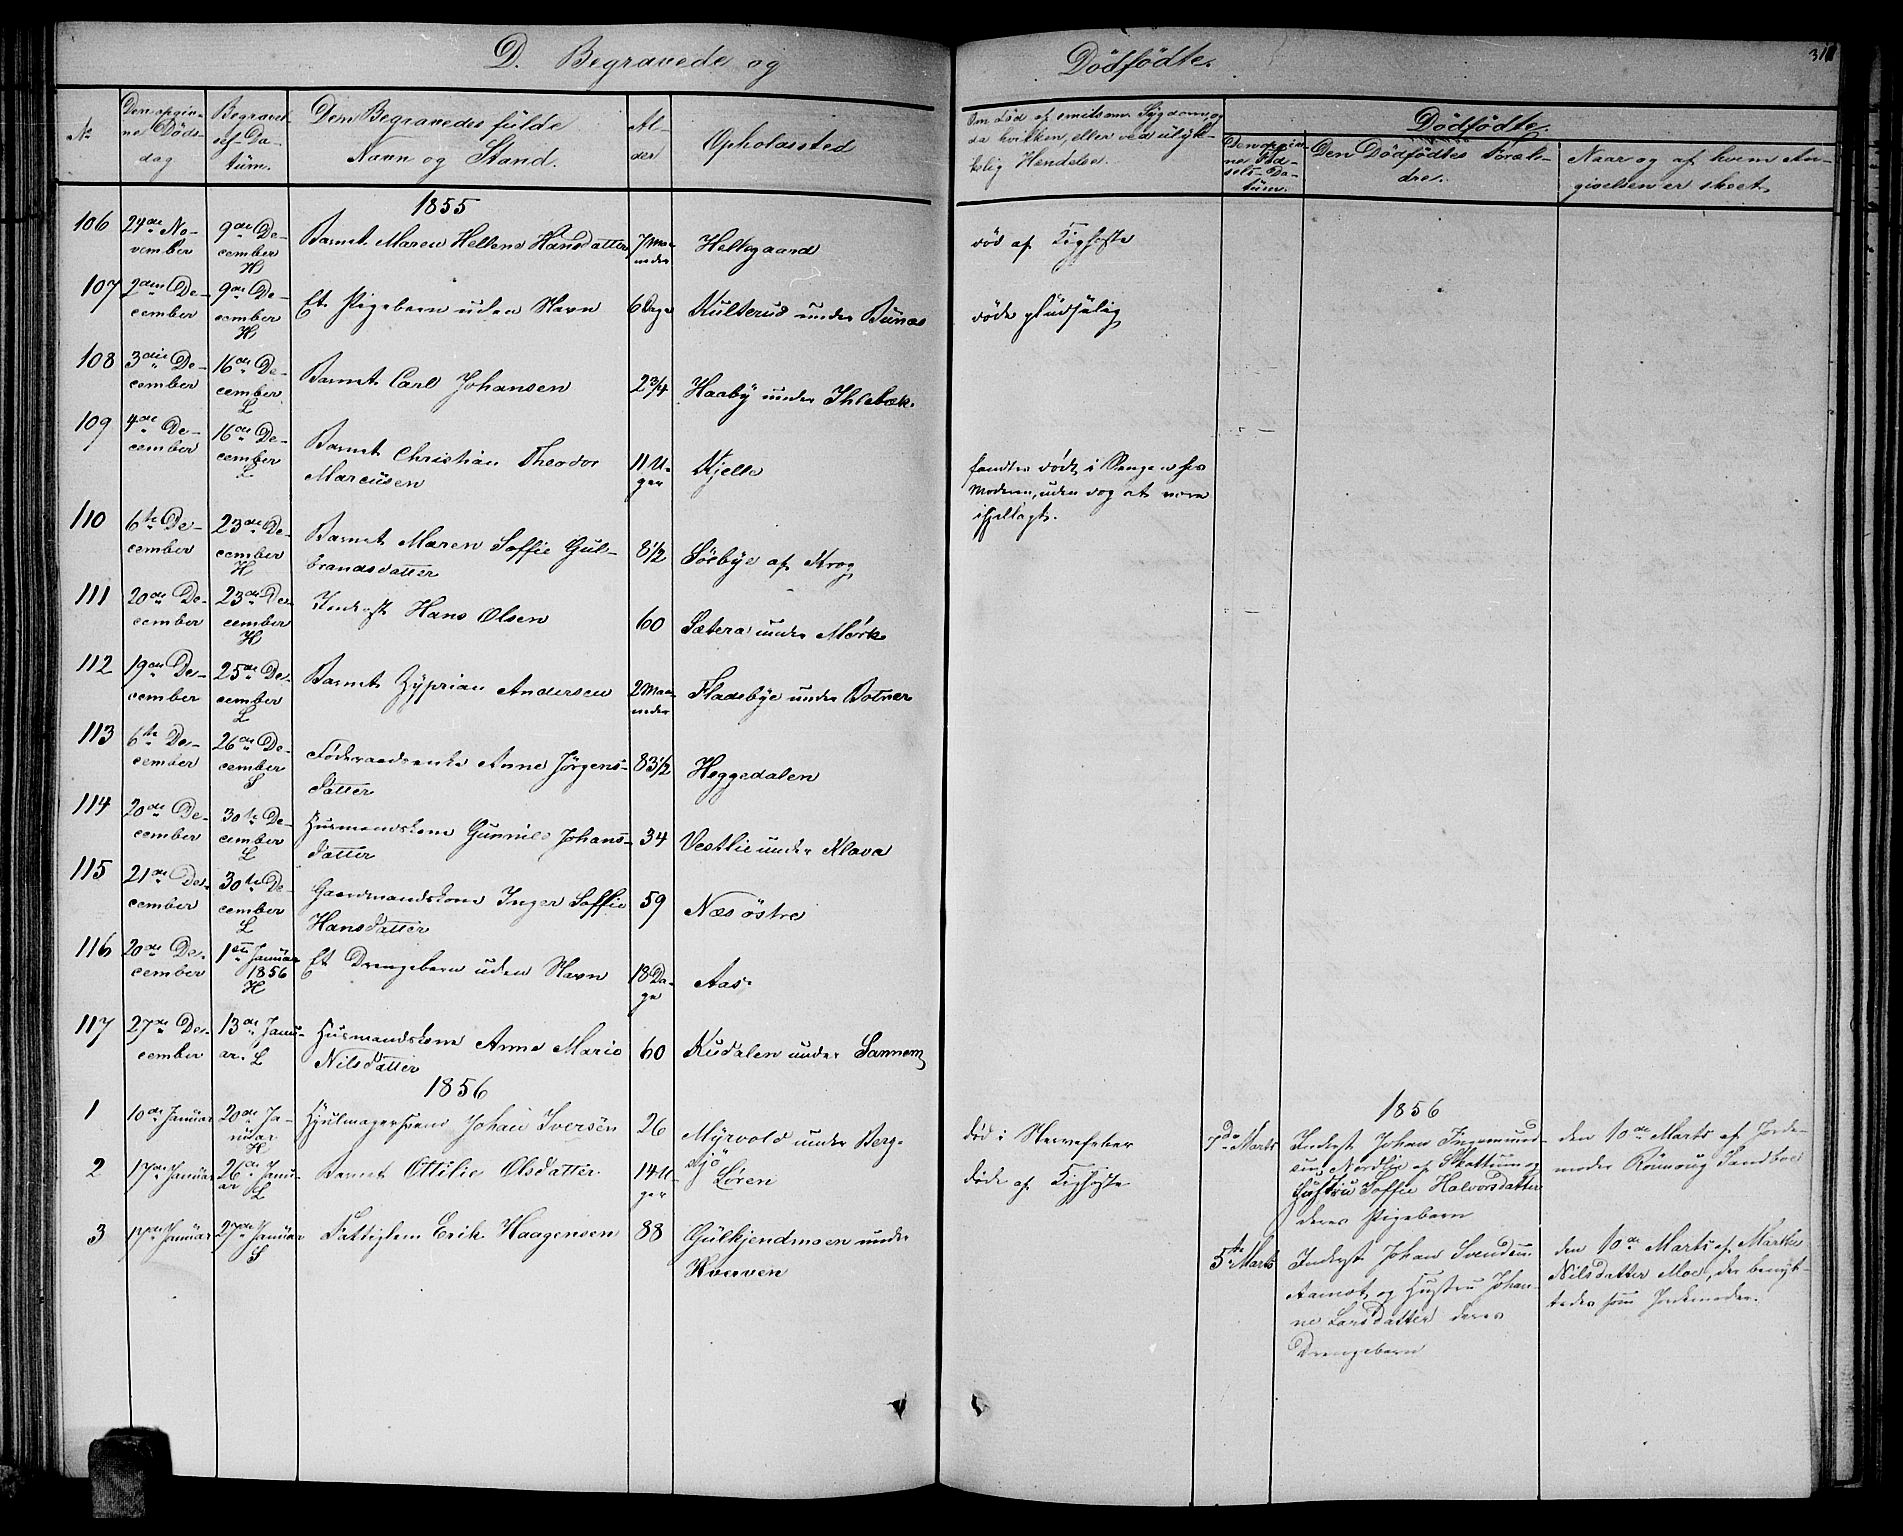 D. Begravede og Dödfödte.
31
No
Den opgivne Dödsdag
Begravelses-Datüm.
Den Begravedes fülde Navn og Stand.
Alder
Opholdssted
Om Död af smitsom Sygdom, og da hvilken, eller ved ulykkelig Hendelse.
Dödfödte.
Den opgivne Födsels-Datüm.
Den Dödfödtes Forældre.
Naar og af hvem Angivelsen er skeet.
1855
106 24de November 9de December H Barnet Maren Hellene Hansdatter 7 Maaneder Helgaard död af Kighoste
107 2den December 9de December H Et Pigebarn uden Navn 6 Dage Kulterud under Bünæs döde plüdselig
108 3die December 16de December L Barnet Carl Johansen 2 3/4 Haaby under Ihlebæk.
109 4de December 16de December L Barnet Christian Theodor Marcüsen 11 Uger Kjelle fandtes död i Sengen hos Moderen, uden dog at være ihjellagt.
110 6te December 23de December H Barnet Maren Soffie Gulbrandsdatter 8 1/2 Söebye af Krog
111 20de December 23de December H Inderst Hans Olsen 60 Sætera under Mörk
112 19de December 25de December L Barnet Zyprian Andersen 2 Maaneder Fladebye under Botner
113 6te December 26de December S Föderaadsenke Anne Jörgensdatter 83 1/2 Heggedalen
114 20de December 30te December L Husmandskone Gunnild Johansdatter 34 Vestlie under Klava
115 21de December 30te December L Gaardmandskone Inger Soffie Hansdatter 59 Næs östre
116 20de December 1ste Januar 1856 H Et Drengebarn uden Navn 18 Dage Aas
117 27de December 13de Januar. L Husmandskone Anne Marie Nilsdatter 60 Kudalen under Sannem
1856
1 10de Januar 20de Januar H Hjulmagersvend Johan Iversen 26 Myrvold under Bergsjö död i Nervefeber
2 17de Januar 26de Januar L Barnet Ottilie Olsdatter 14 Uger Lören döde af Kighoste
3 17de Januar 27de Januar S Fattiglem Erik Haagensen 88 Gülkjendmoen under Hverven
1856
7de Marts Inderst Johan Ingemundsen Nordlie af Skattum og Hustru Soffie Halvorsdatter deres Pigebarn den 10de Marts af Jordemoder Sandboe
5te Marts Inderst Johan Svendsen Aamot og Hustru Johanne Larsdatter deres Drengebarn den 10de Marts af Marthe Nilsdatter Moe, der benyttedes som Jordemoder.